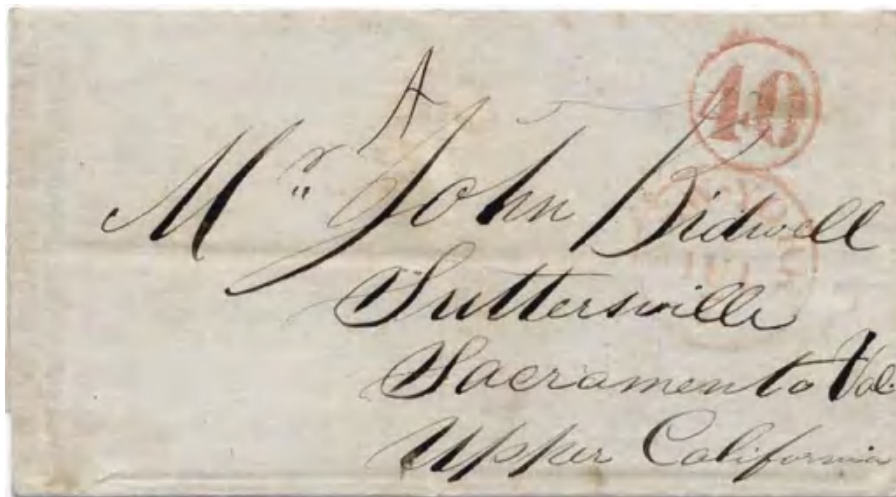 40
A
Mr John Bidwell
Suttersville
Sacramento Val.
Upper California